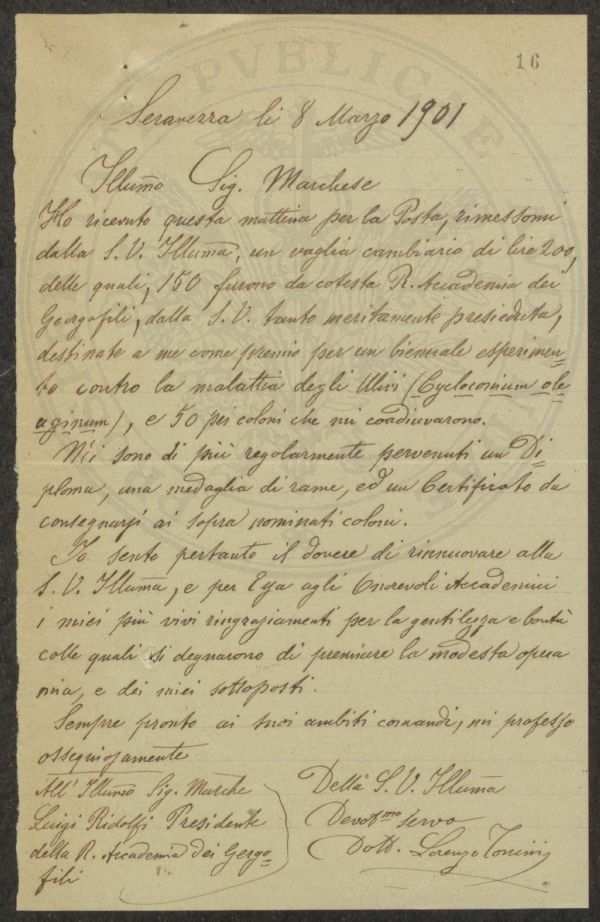 16
PVBLICAE
Seravezza li 8 Marzo 1901
Illumo Sig. Marchese
Ho ricevuto questa mattina per la Posta, rimessomi
dalla S. V. Illuma, un vaglia cambiario di lire 200,
delle quali, 150 furono da cotesta R. Accademia dei
Georgofili, dalla S. V. tanto meritamente presieduta,
destinate a me come premio per un biennale esperimen-
to contro la malattia degli Ulivi (Cycloconium ole-
aginum), e 50 pei coloni che mi coadiuvarono.
Mi sono di più regolarmente pervenuti un Di
ploma, una medaglia di rame, ed un Certificato da
consegnarsi ai sopra nominati coloni.
Io sento pertanto il dovere di rinnuovare alla
S. V. Illuma, e per Essa agli Onorevoli Accademici
i miei più vivi ringraziamenti per la gentilezza e bontà
colle quali si degnarono di premiare la modesta opera
mia, e dei miei sottoposti.
Sempre pronto ai suoi ambiti comandi, mi professo
ossequiosamente
All' Illumo Sig. Marche
Luigi Ridolfi Presidente
della R. Accademia dei Georgo-
fili
Della S. V. Illuma
Devotmo servo
Dott. Lorenzo Tonini